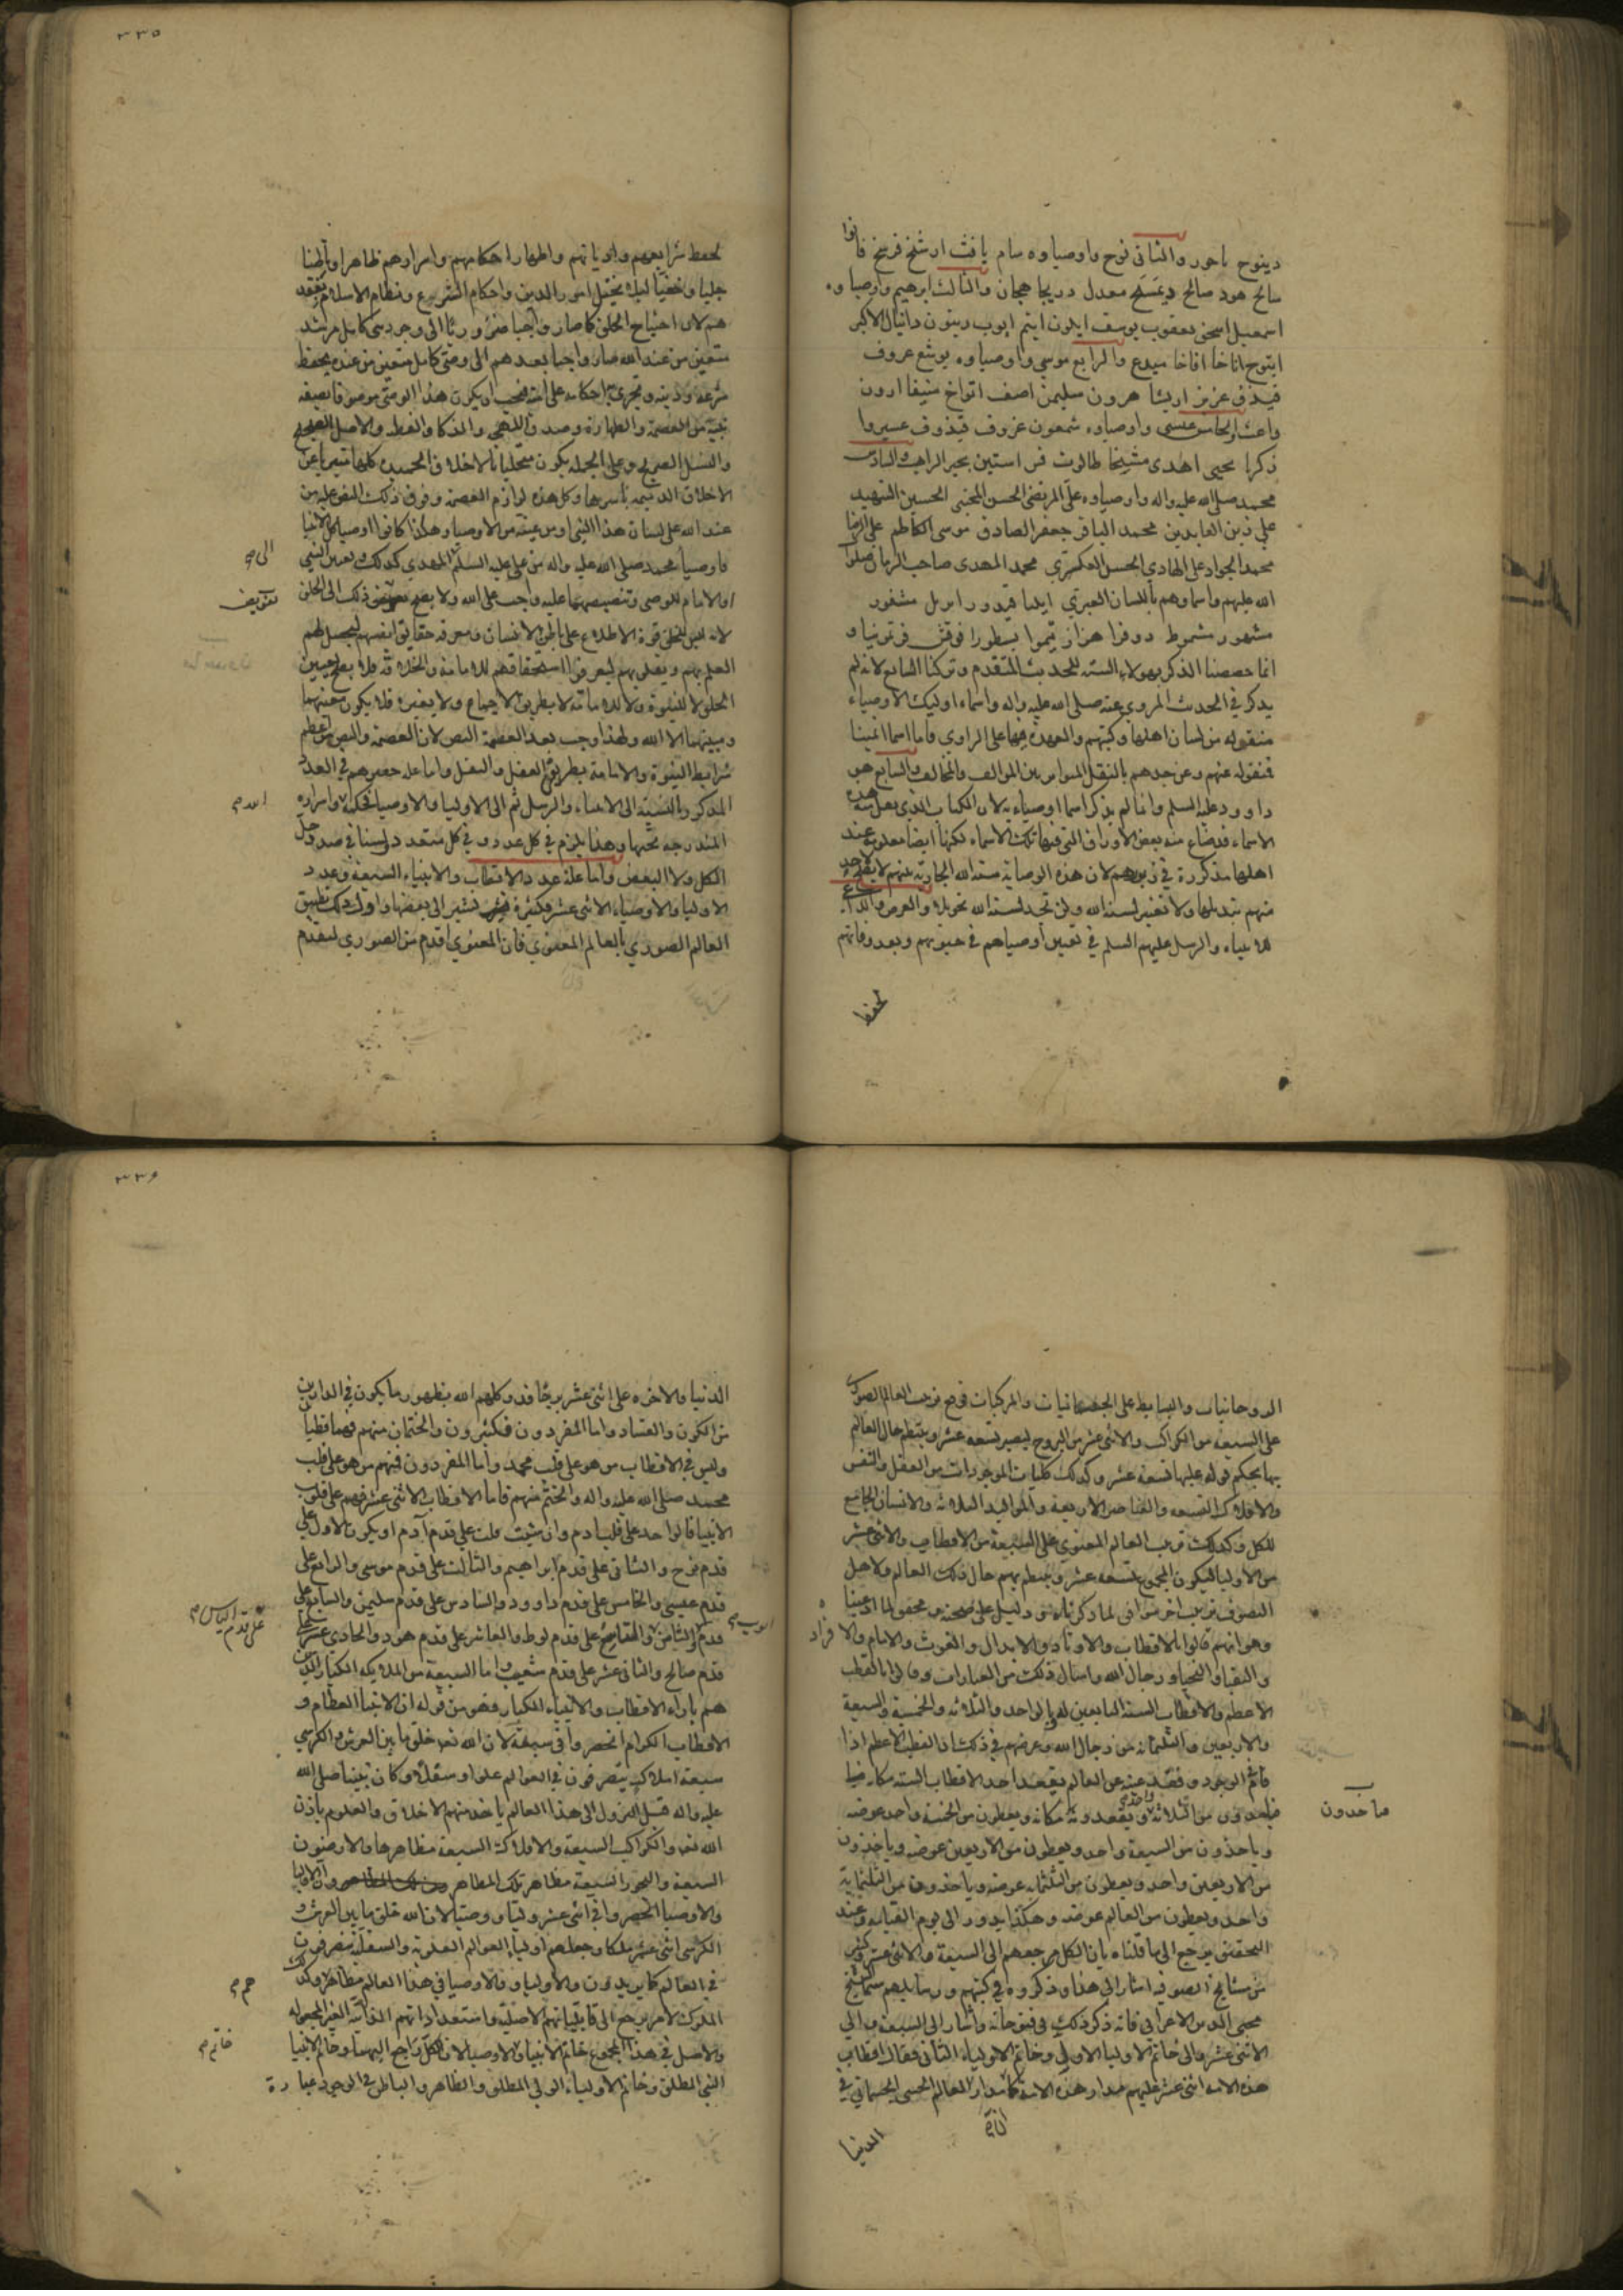 دينوح باحور والثاني نوح واوصياوه سام يافث ارشخ فرشخ فانوا
سالح هود صالح ديمسخ معدل دريجا هجان والثالث ابرهيم واوصياوه
اسمعيل اسحق يعقوب يوسف ايلون ايتم ايوب دينون دانيال الاكبر
ايتوح اناخا افاخا ميدع والرابع موسى واوصياوه يوشع عروف
فيذف عزيز اريشا هرون سليمن اصف اتواخ منيفا ارون
واعث والخامس عيسى واوصياوه شمعون عروف قيذوف عسيروا
زكريا يحيى اهدى مشيخا طالوت قس استين بحير الراهب والسادس
محمد صلى الله عليه واله واوصياوه علي المرتضى الحسن المجتبى الحسين الشهيد
علي زين العابدين محمد الباقر جعفر الصادق موسى الكاظم علي الرضا
محمد الجواد علي الهادي الحسن العسكري محمد المهدي صاحب الزمان صلوات
الله عليهم واسماوهم باللسان العبري ايليا قيدور ايربل مشفور
مشهور مشموط دوفرا هزار تيموا بسطورا فوقش قرتونيا و
انما خصصنا الذكر بهولاء الستة للحديث المتقدم وتركنا السابع لانه لم
يذكر في الحديث المروي عنه صلى الله عليه واله واسماء اوليك الاوصياء
منقوله من لسان اهلها وكتبهم والعهدة فيها على الراوي فاما اسما ائمتنا
فمنقوله عنهم وعن جدهم بالنقل المتواتر من الموالف والمخالف والسابع هو
داوود عليه السلم وانما لم يذكر اسما اوصياءه لان الكتاب الذي نقل منه هذه
الاسماء قد ضاع منه بعض الاوراق التي فيها تلك الاسماء لكنها ايضا معلومة عند
اهلها مذكورة في زبرهم لان هذه الوصاية سنة الله الجارية منهم لا يقدر احد
منهم تبديلها ولا تغيير لسنة الله ولن تجد لسنة الله تحويلا والغرض والداعي
للانبياء والرسل عليهم السلم في تعيين اوصياهم في حيوتهم وبعد وفاتهم
لحفظ
٣٣٥
لحفظ شرايعهم واديانهم واظهار احكامهم واسرارهم ظاهرا وباطنا
جليا وخفيا ليلا يختل امور الدين واحكام الشرع ونظام الاسلام بفقد
هم لان احتياج الخلق كما صار واجبا ضروريا الى وجود نبي كامل مرشد
متعين من عند الله صار واجبا بعدهم الى وصي كامل متعين من عنده يحفظ
شرعه ودينه ويجري احكامه على امته فيجب ان يكون هذا الوصي موصوفا بصفة
نبيه من العصمة والطهارة وصدق اللهجة والذكا والفطنة والاصل الصحيح
والنسل الصريح وعلى الجملة يكون متحليا بالاخلاق الحميدة كلها متبريا عن
الاخلاق الذميمة باسرها وكل هذه لوازم العصمة وفوق ذلك النص عليه من
عند الله على لسان هذا النبي او من عينه من الاوصيا وهكذا كانوا اوصيا كل الانبيا
فاوصيا محمد صلى الله عليه واله من علي عليه السلم المهدي كذلك وتعيين النبي
الى
او الامام للوصي وتنصيصهما عليه واجب على الله ولا يصح ذلك الى الخلق
تفويض
لانه ليس للخلق قوة الاطلاع على باطن الانسان ومعرفة حقايق انفسهم ليحصل لهم
العلم بهم ويقلوبهم ليعرفوا استحقاقهم للامامة والخلافة فلا يصح تعيين
الخلق لا للنبوة ولا للامامة لا بطريق الاجماع ولا بغيره فلا يكون معينهما
ومبينهما الا الله ولهذا وجب بعد العصمة النص لان العصمة والنص من اعظم
شرايط النبوة والامامة بطريق العقل والنقل واما علة حصرهم في العدد
المذكور بالنسبة الى الانبياء والرسل ثم الى الاوليا والاوصيا فحكم واسراره
المندرجة تحتها وهذا يلزم في كل عدد وفي كل متعدد ولسنا في صدد حل
الكل ولا البعض واما علة عدد الاقطاب والانبياء السبعة وعدد
الاوليا والاوصياء الاثنى عشر فكثيرة نشير الى بعضها واول ذلك تطبيق
العالم الصوري بالعالم المعنوي فان المعنوي اقدم من الصوري لتقدم
الروحانيات والبسايط على الجسمانيات والمركبات فوضع ترتيب العالم الصوري
على السبعة من الكواكب والاثنى عشر من البروج ليصير تسعة عشر وينتظم حال العالم
بها بحكم قوله عليها تسعة عشر وكذلك كليات الموجودات من العقل والنفس
والافلاك التسعة والعناصر الاربعة والمواليد الثلاثة والانسان الجامع
للكل وكذلك ترتيب العالم المعنوي على السبعة من الاقطاب والاثنى عشر
من الاوليا ليكون المجموع تسعة عشر وينتظم بهم حال ذلك العالم ولاهل
التصوف ترتيب اخر موافق لما ذكرناه ودليل على صحته ومحقق لما ادعينا
وهو انهم قالوا بالاقطاب والاوتاد والابدال والغوث والامام والافراد
والنقبا والنجبا ورجال الله وامثال ذلك من العبارات وقالوا بالقطب
الاعظم والاقطاب الستة التابعين له وبالواحد والثلاثة والخمسة والسبعة
والاربعين والثلثماية من رجال الله وغرضهم في ذلك ان القطب الاعظم اذا
فات الوجود وفقد عنه عن العالم يقعد احد الاقطاب الستة مكانه
فياخذون من الثلاثة واحدا ويقعدونه مكانه ويعطون من الخمسة واحد عوضه
ياخذون
وياخذون من السبعة واحد ويعطون من الاربعين عوضه وياخذون
من الاربعين واحد ويعطون من الثلثماية عوضه وياخذون من الثلثماية
واحد ويعطون من العالم عوضه وهكذا يدور الى يوم القيامة وعند
التحقيق يرجع الى ما قلناه بان الكل مرجعهم الى السبعة والاثنى عشر وكثير
من مشايخ الصوفية اشار الى هذا وذكروه في كتبهم ورسايلهم سيما الشيخ
محيى الدين الاعرابي فانه ذكر ذلك في فتوحاته واشار الى السبعة والى
الاثنى عشر والى خاتم الاوليا الاول وخاتم الاولياء الثاني فقال اقطاب
هذه الامة اثنى عشر عليهم مدار هذه الامة كما ان مدار العالم الحسي الجسماني في
الدنيا
٣٣٦
الدنيا والاخرة على اثنى عشر برجا قد وكلهم الله بظهور ما يكون في الدارين
من الكون والفساد واما المفردون فكثيرون والختمان منهم فهما قطبان
وليس في الاقطاب من هو على قلب محمد واما المفردون فمنهم من هو على قلب
محمد صلى الله عليه واله والختم منهم فاما الاقطاب الاثنى عشر فهم على قلوب
الانبيا فالواحد على قلب ادم وان شيت قلت على قدم آدم او يكون الاول على
قدم نوح والثاني على قدم ابراهيم والثالث على قدم موسى والرابع على
قدم عيسى والخامس على قدم داوود والسادس على قدم سليمن والسابع على
على قدم الياس
ايوب
قدم والثامن والتاسع على قدم لوط والعاشر على قدم هود والحادي عشر على
قدم صالح والثاني عشر على قدم شعيب واما السبعة من الملايكة الكبار الذين
هم بازاء الاقطاب والانبياء الكبار فهو من قوله ان الانبيا العظام و
الاقطاب الكرام انحصروا في سبعة لان الله تعـ خلق ما بين العرش والكرسي
سبعة املاك يتصرفون في العوالم علوا وسفلا وكان نبينا صلى الله
عليه واله قبل النزول الى هذا العالم ياخذ منهم الاخلاق والعلوم باذن
الله تعـ والكواكب السبعة والافلاك السبعة مظاهرها والارضون
السبعة والبحور السبعة مظاهر تلك المظاهر وان الاوليا
والاوصيا انحصروا في اثنى عشر وليا ووصيا لان الله خلق ما بين العرش و
الكرسي اثنى عشر ملكا وجعلهم اوليا العوالم العلوية والسفلية يتصرفون
في العالم كما يريدون والاوليا والاوصيا في هذا العالم مظاهر وكذلك
هم
الملوك لامر يرجع الى قابلياتهم الاصلية واستعداداتهم الذاتية الغير المجعولة
والاصل في هذا المجموع خاتم الانبيا والاوصيا لان الكل راجع اليهما وخاتم الانبيا
خاتم
النبي المطلق وخاتم الاولياء الولي المطلق والظاهر والباطن في الوجود عبارة